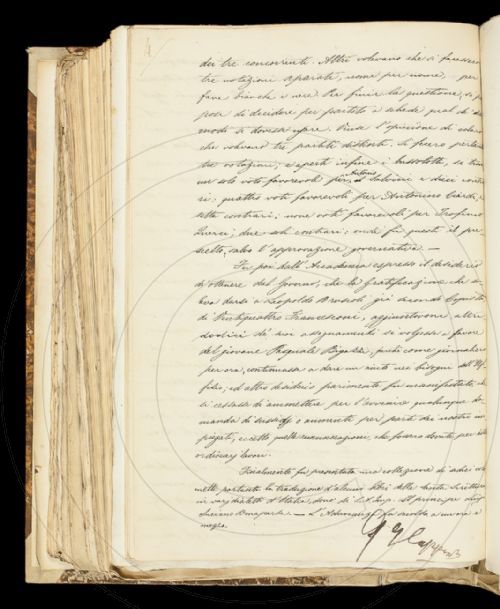 dei tre concorrenti. Altri volevano che si facessero
tre votazioni separate, nome per nome, per
fave bianche e nere. Per finir la questione, si pro
pose di decidere per partito a schede qual de'
modi si dovesse usare. Vinse l'opinione di coloro
che volevano tre partiti distinti. Si fecero pertanto
tre votazioni, e aperti infine i bussolotti, si trovò
un solo voto favorevole per Antonio Salvini e dieci contra
ri: quattro voti favorevoli per Antonino e
sette contrari; nove voti favorevoli per
due soli contrari: onde fu questi il pre
scelto, salvo l'approvazione governativa. —
Fu poi dall'Accademia espresso il desiderio
di ottenere dal Governo, che la Gratificazione che so
leva darsi a Leopoldo già
di Ventiquattro Francesconi, aggiuntovene altri
dodici de' suoi assegnamenti si volgesse a favore
del giovane Pasquale perché come giornaliero
per ora, continuasse a dare un aiuto ne' bisogni dell'Uf
fizio; ed altro desiderio parimente fu manifestato che
si cessasse di ammettere per l'avvenire qualunque do
manda di sussidj o aumenti per parte dei nostri im
piegati, eccetto quelle rimunerazioni, che fossero dovute per
ordinarj lavori.
Finalmente fu presentata una collezione di dodici vo
metti portante la traduzione d'alcuni libri della Santa Scrittura
in varj dialetti d'Italia, dono di S. A. Imp. il principe Luigi
Luciano Bonaparte. — L'Adunanza fu sciolta a un'ora e
mezzo.